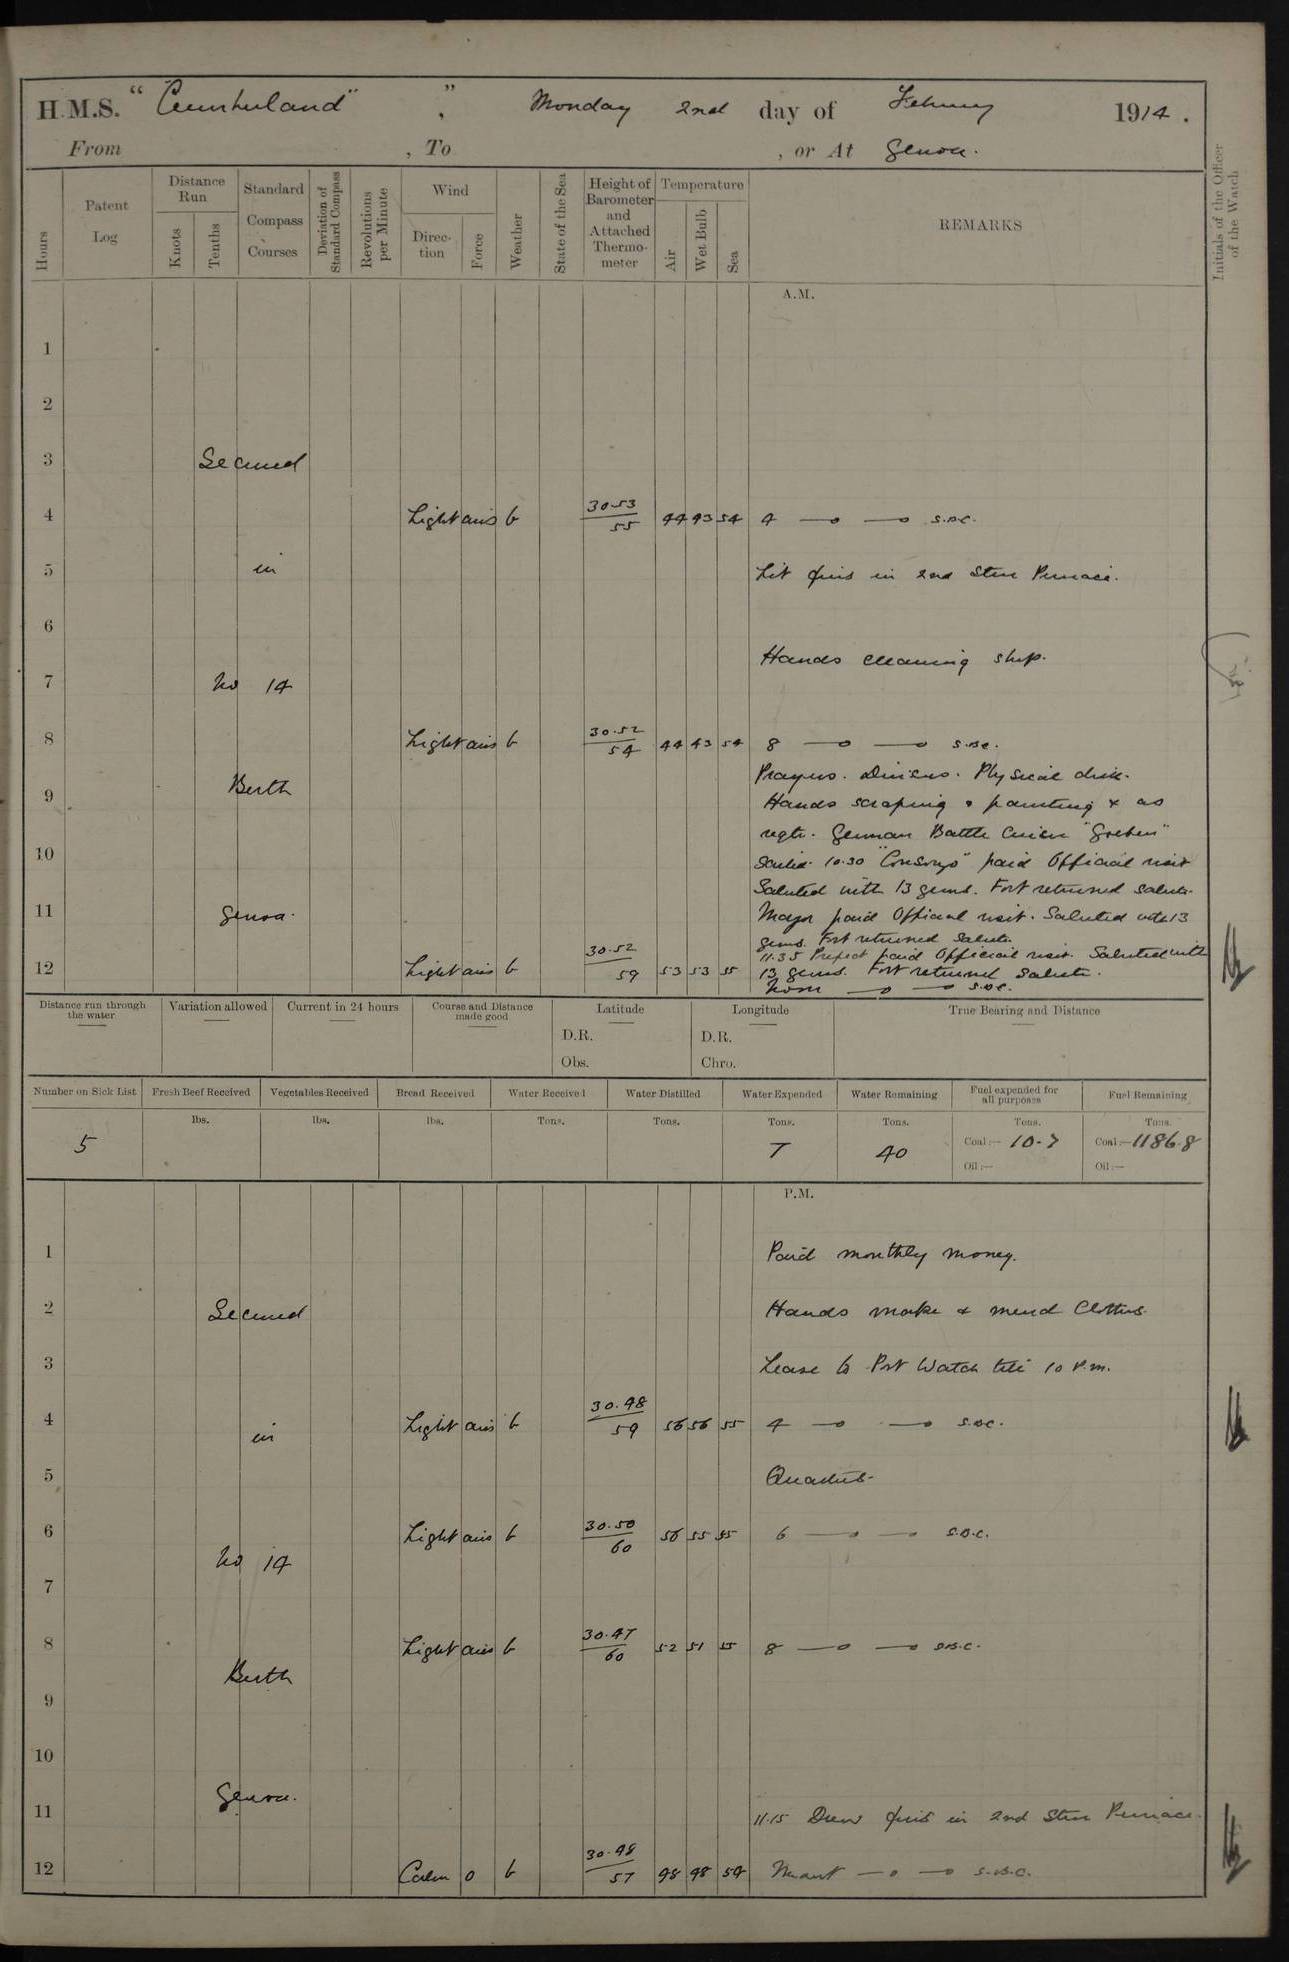 H.M.S. "Cumberland", Monday 2nd day of February 1914.
From , To , or At Genoa.
Hours
Patent Log
Distance Run
Knots
Tenths
Standard Compass Courses
Deviation of Standard Compass
Revolutions per Minute
Wind
Direction
Force
Weather
State of the Sea
Height of Barometer and Attached Thermometer
Temperature
Air
Wet Bulb
Sea
REMARKS
Initials of the Officer of the Watch
A.M.
1
2
3 Secured
4 Light airs b 30.53 55 44 43 54 4 S.B.C.
5 in Lit fires in 2nd Stm Pinnace.
6
Hands cleaning ship.
7 No 14
8 Light airs b 30.52 54 44 43 54 8 S.B.C.
Prayers. Divisions. Physical drill.
9 Berth Hands scraping & painting & as
reqte. German Battle Cruiser "Goeben"
10 sailed. 10.30 "Consuls" paid Official visit
Saluted with 13 guns. Fort returned salute.
11 Genoa. Mayor paid Official visit. Saluted with 13
guns. Fort returned Salute.
11.35 Prefect paid Official visit. Saluted with
12 Light airs b 30.52 59 53 53 55 13 guns. Fort returned Salute.
Noon S.B.C.
Distance run through the water
Variation allowed
Current in 24 hours
Course and Distance made good
Latitude
D.R.
Obs.
Longitude
D.R.
Chro.
True Bearing and Distance
Number on Sick List Fresh Beef Received Vegetables Received Bread Received Water Received Water Distilled Water Expended Water Remaining Fuel expended for all purposes Fuel Remaining
lbs. lbs. lbs. Tons. Tons. Tons. Tons. Tons. Tons.
5 7 40 Coal:— 10.7 Coal:— 1186.8
Oil:— Oil:—
P.M.
1 Paid monthly money.
2 Secured Hands make & mend Clothes.
3 Leave to Port Watch till 10 P.M.
4 in Light airs b 30.48 59 56 56 55 4 S.B.C.
5 Quarters.
6 Light airs b 30.50 60 56 55 55 6 S.B.C.
No 14
7
8 Light airs b 30.47 60 52 51 55 8 S.B.C.
Berth
9
10
Genoa.
11 11.15 Drew fires in 2nd Stm Pinnace.
12 Calm 0 b 30.48 57 48 48 54 Midnt S.B.C.